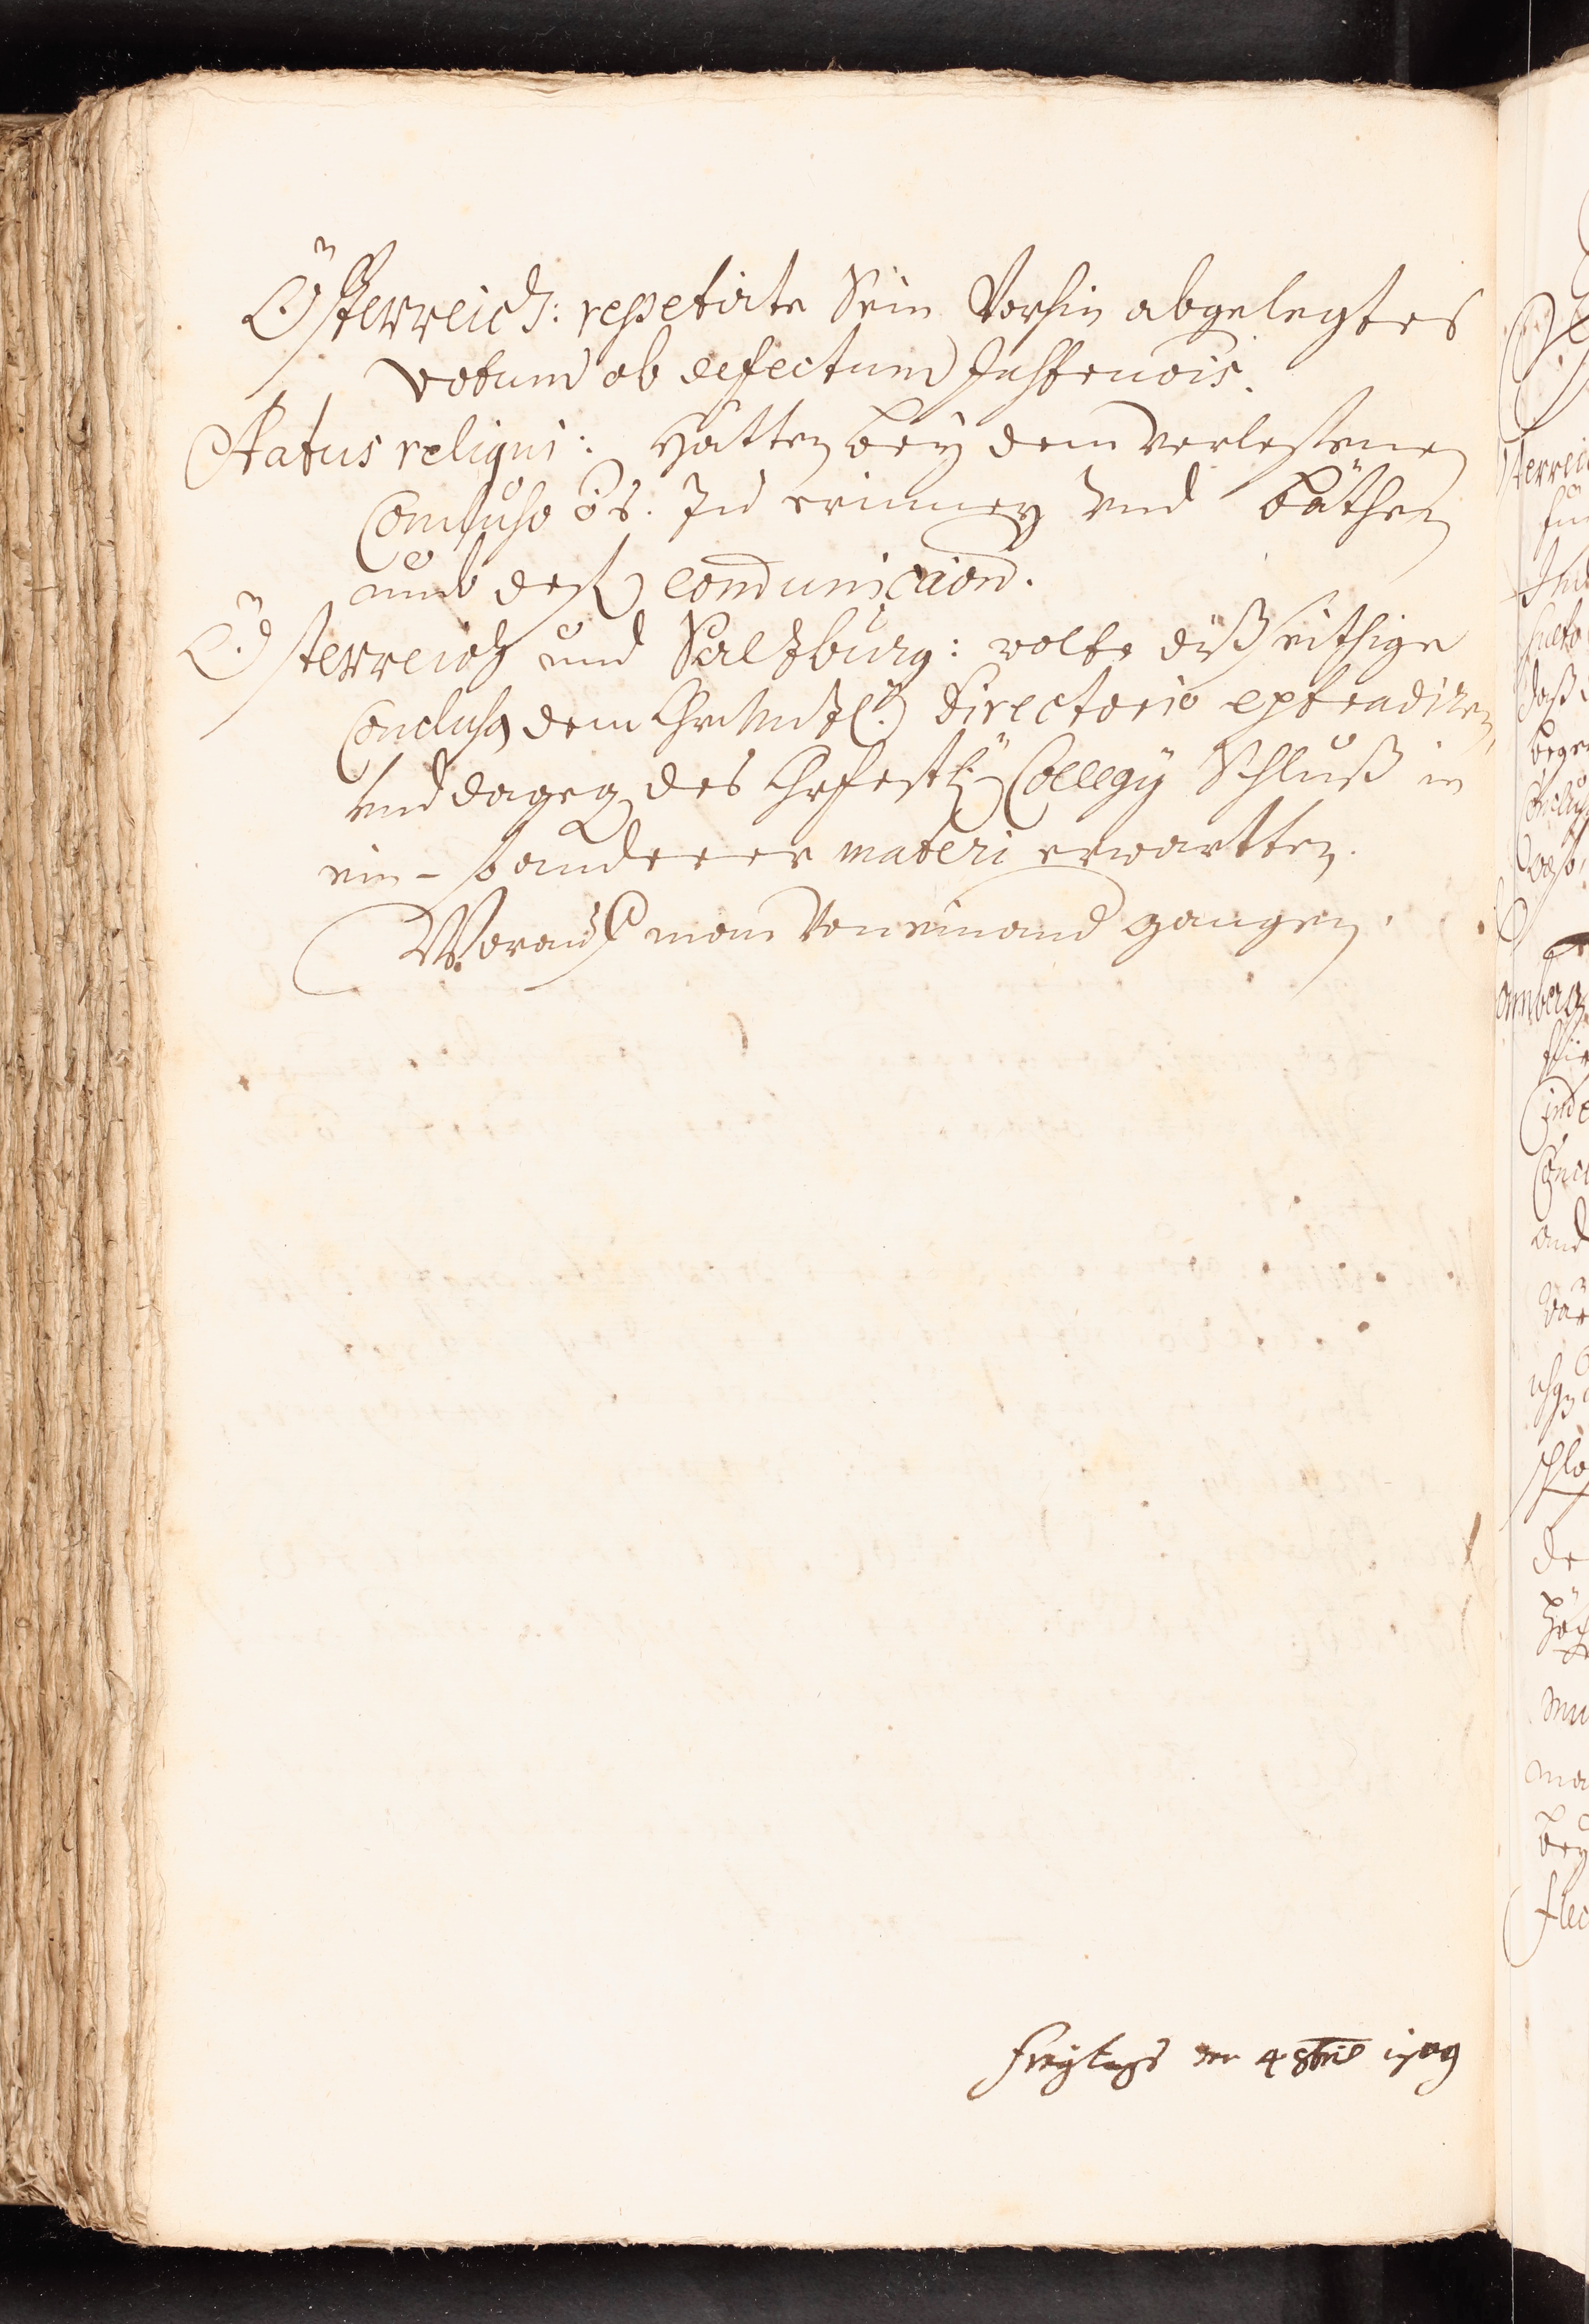 Österreich: repetirte Sein Vorhin abgelegtes
votum ob defectum Instrucõis.
Status religui: Hätten bey dem verlesenen
Concluso õs. Zu erinnern Und bäthen
umb deß communicaion.
Österreich und Saltzburg: wolte dißeithige
Conclusa dem ChurMntzl. Directorio extradiren,
Und dageg des Churfürstl: Collegÿ Schluß in
ein- und anderer materi erwartten.
Worauf man Von einand gangen.
Freytags den 4 8bris 1709